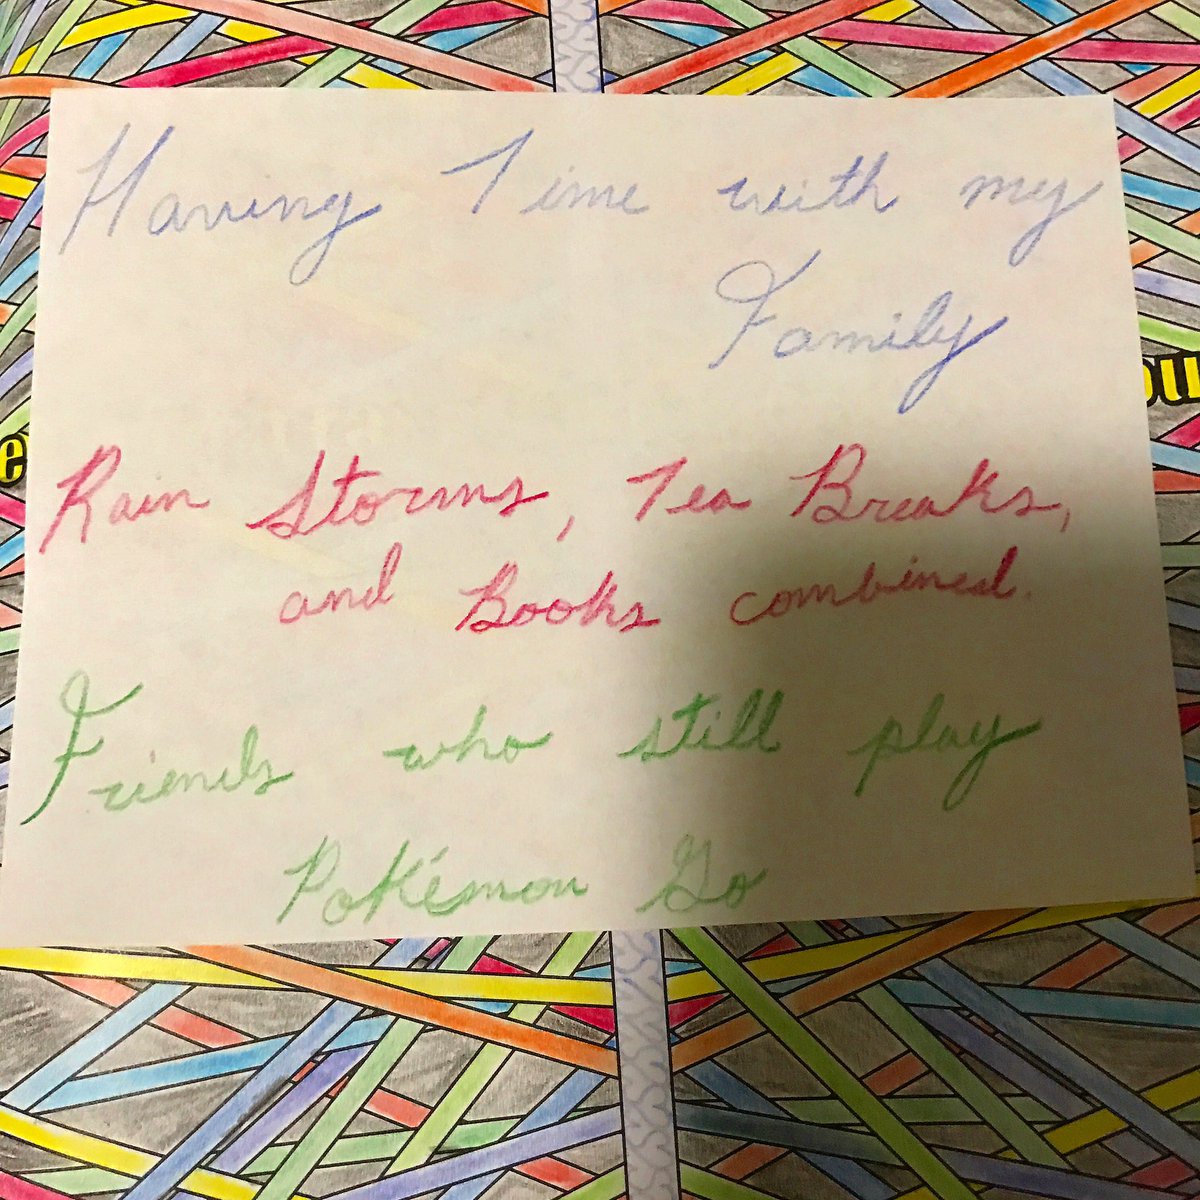 Having Time with my
Family
Rain Storms, Tea Breaks,
and Books combined.
Friends who still play
Pokémon Go